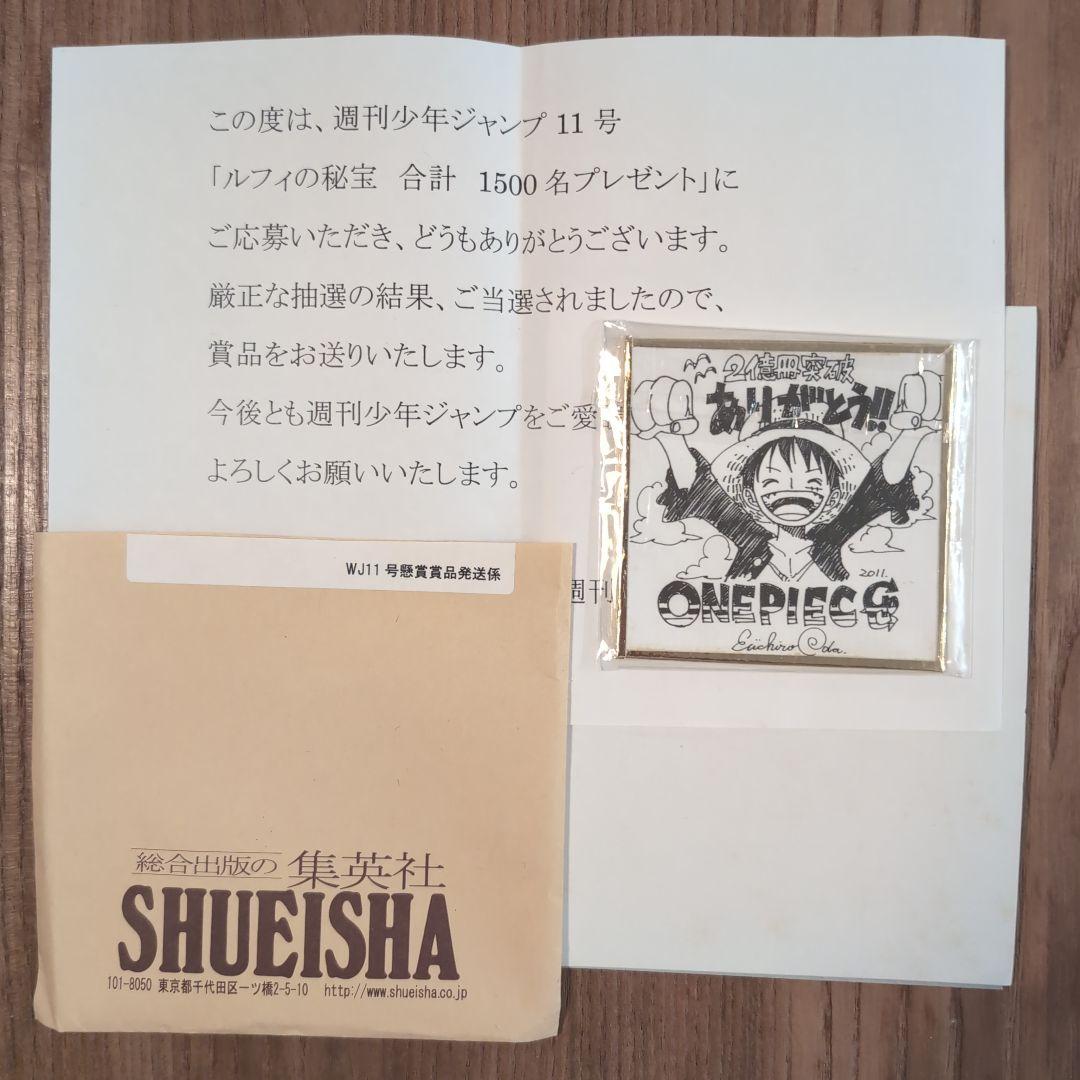 この度は、週刊少年ジャンプ 11 号
「ルフィの秘宝 合計 1500 名プレゼント」に
ご応募いただき、どうもありがとうございます。
厳正な抽選の結果、ご当選されましたので、
賞品をお送りいたします。
今後とも週刊少年ジャンプをご愛
よろしくお願いいたします。
週刊
2億冊突破
ありがとう!!
2011.
ONE PIECE
Eiichiro Oda.
WJ11 号懸賞賞品発送係
総合出版の 集英社
SHUEISHA
101-8050 東京都千代田区一ツ橋2-5-10 http://www.shueisha.co.jp